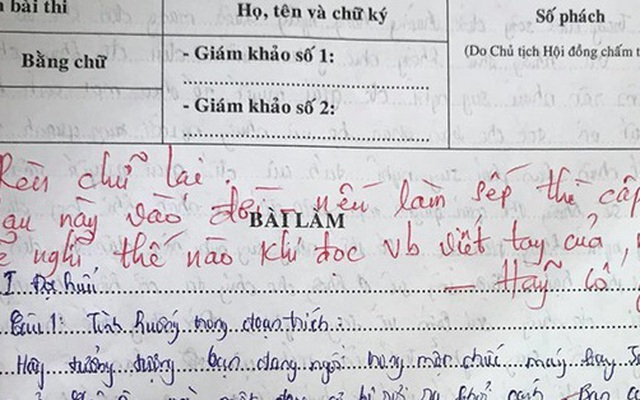 bài thi
Họ, tên và chữ ký
Số phách
Bằng chữ
- Giám khảo số 1:
(Do Chủ tịch Hội đồng chấm t
- Giám khảo số 2:
Rèn chữ lại.
này vào đời nếu làm sếp thì cấp
BÀI LÀM
nghĩ thế nào khi đọc vb viết tay của
— Hãy cố
I Đọc hiểu
Câu 1: Tình huống trong đoạn trích:
Hãy tưởng tượng bạn đang ngồi trong một chiếc máy bay